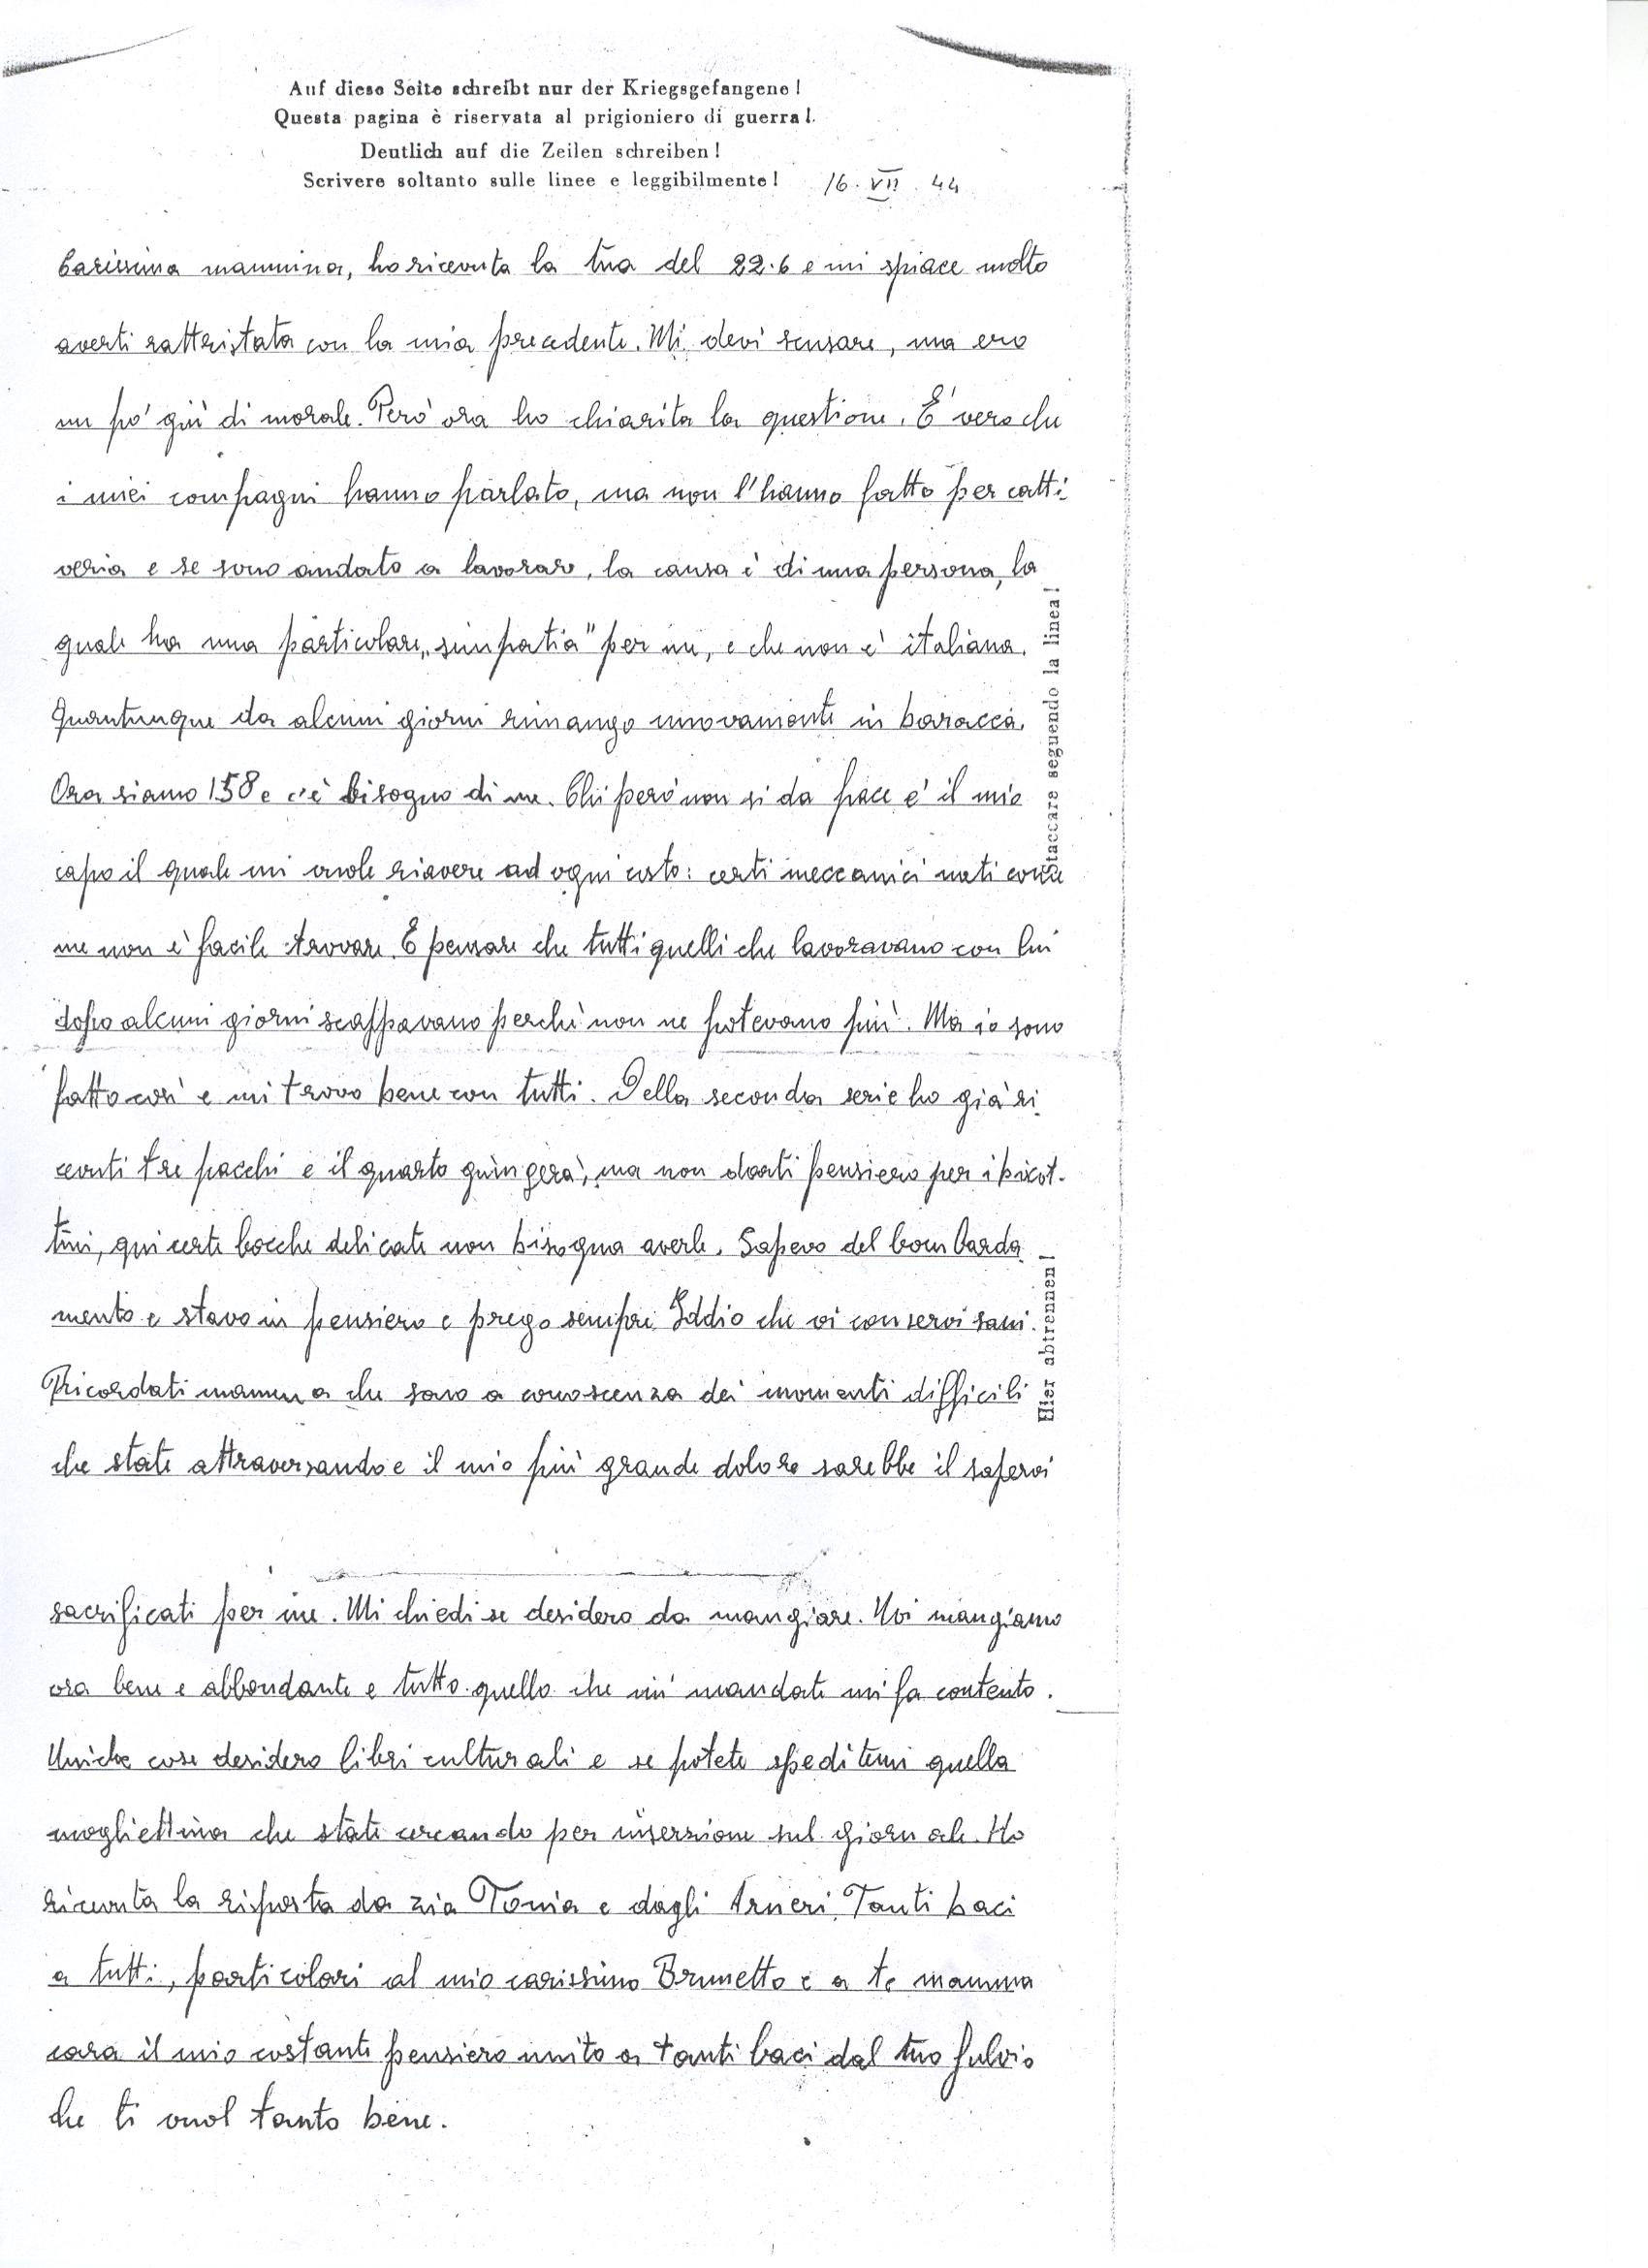 Auf diese Seite schreibt nur der Kriegsgefangene!
Questa pagina è riservata al prigioniero di guerra!
Deutlich auf die Zeilen schreiben!
Scrivere soltanto sulle linee e leggibilmente! 16. VII. 44
Carissima mammina, ho ricevuta la tua del 22.6 e mi spiace molto
averti rattristata con la mia precedente. Mi devi scusare, ma ero
un po' giù di morale. Però ora ho chiarita la questione. E' vero che
i miei compagni hanno parlato, ma non l'hanno fatto per catti
veria e se sono andato a lavorare, la causa è di una persona, la
quale ha una particolare „simpatia" per me, e che non è italiana.
Quantunque da alcuni giorni rimango nuovamente in baracca.
Ora siamo 158 e c'è bisogno di me. Chi però non si da pace e' il mio
capo il quale mi vuole riavere ad ogni costo: certi meccanici nati come
me non è facile trovare. E pensare che tutti quelli che lavoravano con lui
dopo alcuni giorni scappavano perchè non ne potevano più. Ma io sono
fatto così e mi trovo bene con tutti. Della seconda serie ho già ri
cevuti tre pacchi e il quarto giungerà, ma non darti pensiero per i biscot-
tini, qui certe bocche delicate non bisogna averle. Sapevo del bombarda
mento e stavo in pensiero e prego sempre Iddio che vi conservi sani.
Ricordati mamma che sono a conoscenza dei momenti difficili
che state attraversando e il mio più grande dolore sarebbe il sapervi
sacrificati per me. Mi chiedi se desidero da mangiare. Noi mangiamo
ora bene e abbondante e tutto quello che mi mandate mi fa contento.
Uniche cose desidero libri culturali e se potete speditemi quella
mogliettina che state cercando per inserzione sul giornale. Ho
ricevuta la risposta da zia Tonia e dagli Arneri. Tanti baci
a tutti, particolari al mio carissimo Brunetto e a te mamma
cara il mio costante pensiero unito a tanti baci dal tuo Fulvio
che ti vuol tanto bene.
staccare seguendo la linea!
Hier abtrennen!